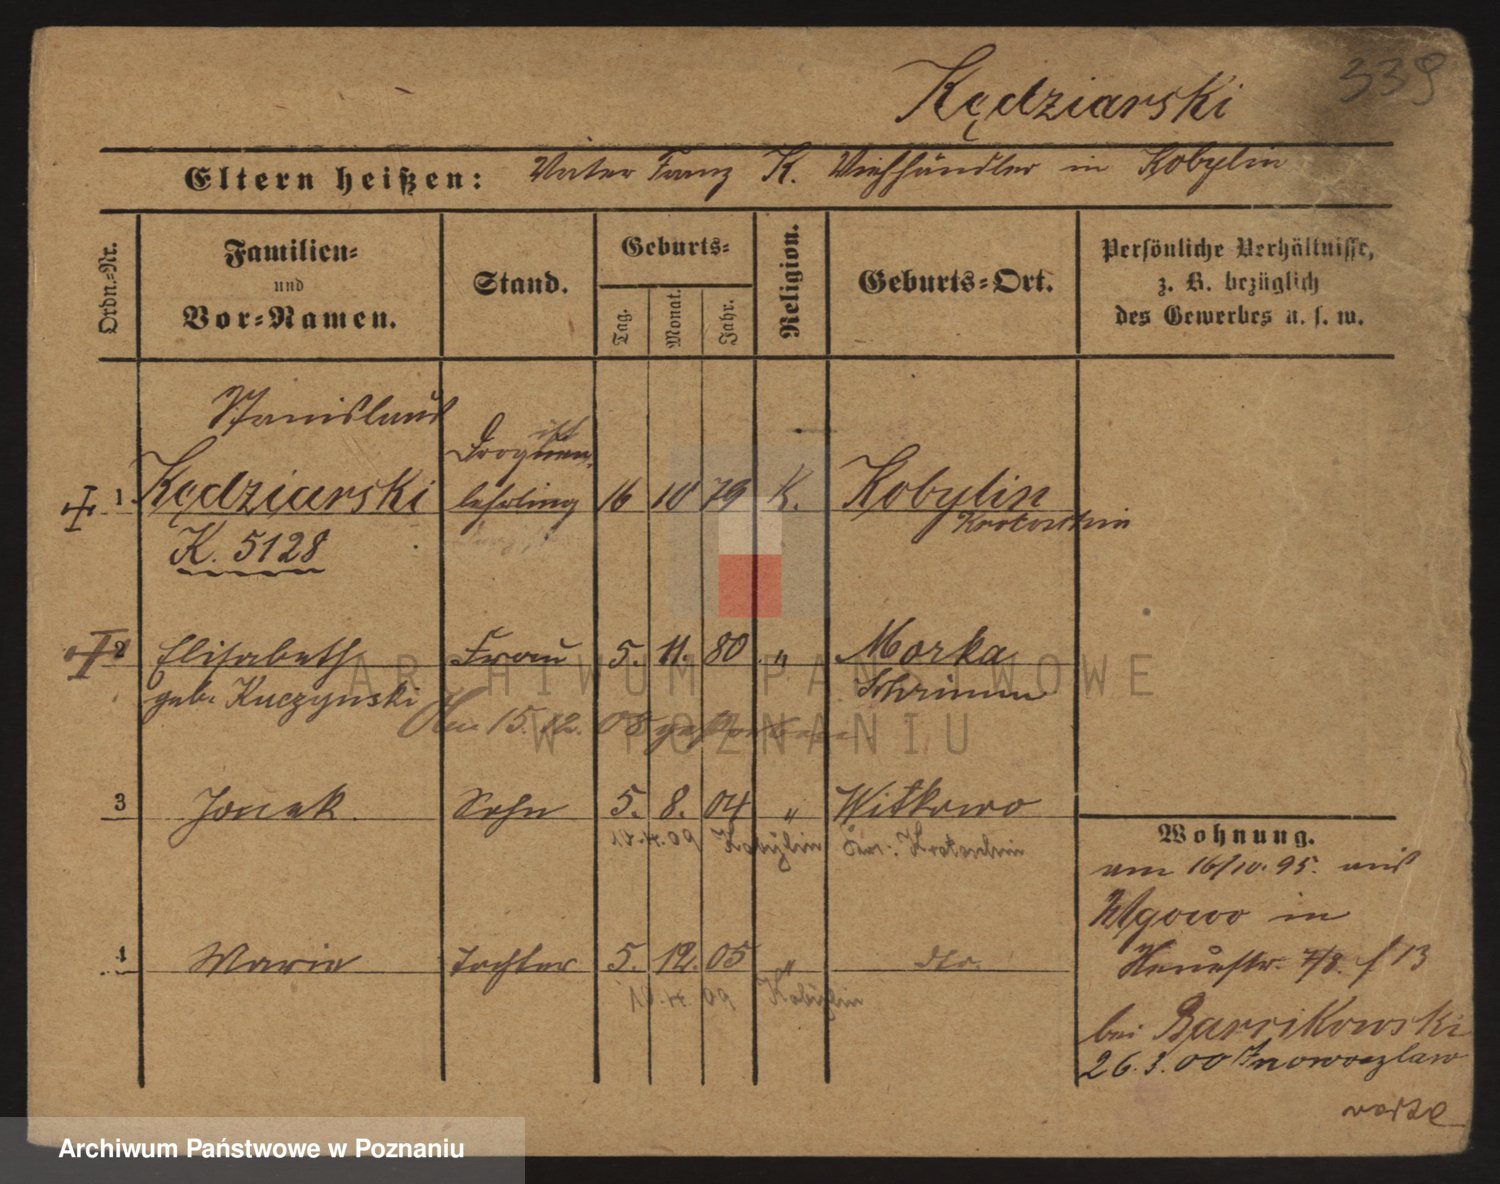 339
Kędziarski
Eltern heißen: Vater Franz K. Viehhändler in Kobylin
Ordn.-Nr.
Familien-
und
Vor-Namen.
Stand.
Geburts-
Tag.
Monat.
Jahr.
Religion.
Geburts-Ort.
Persönliche Verhältnisse,
z. B. bezüglich
des Gewerbes u. s. w.
Stanislaus
Droguen
1 Kędziarski lehrling 16 10 79 K. Kobylin
Krotoschin
K. 5128
2 Elisabeth Frau 5. 11. 80 " Morka
geb. Kuczynski Schrimm
Am 15. 12. 08 gestorben.
3 Sohn 5. 8. 04 " Witkowo
10.4.09 Kobylin Krotoschin
4 Marie Tochter 5. 12. 05 " dto.
10.4.09 Kobylin
Wohnung.
am 16/10. 95. aus
in
Neuestr. 7/8. f 13
bei Barrikowski
26.3.00 Inowrazlaw
ARCHIWUM PAŃSTWOWE
W POZNANIU
Archiwum Państwowe w Poznaniu